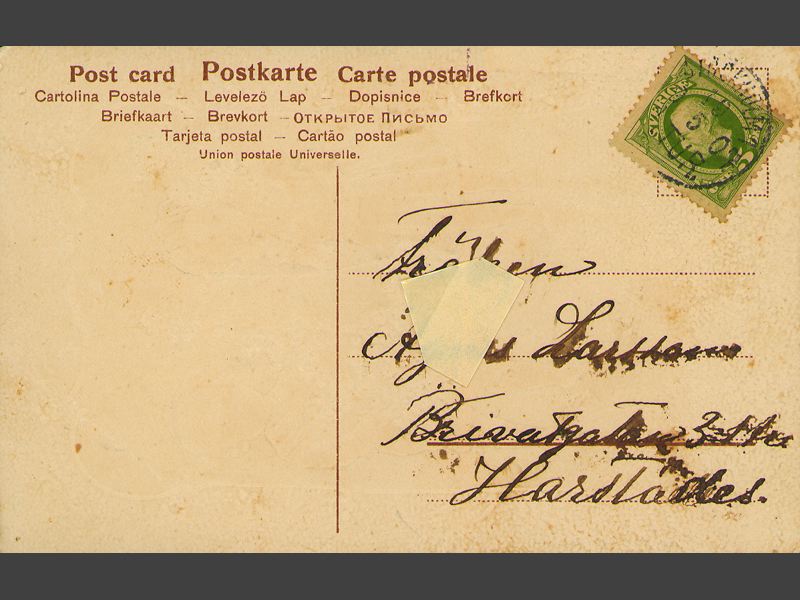 Post card Postkarte Carte postale
Cartolina Postale — Levelező Lap — Dopisnice — Brefkort
Briefkaart — Brevkort — Открытое Письмо
Tarjeta postal — Cartão postal
Union postale Universelle.
SVERIGE
5
Fröken
Larsson
Privatgatan